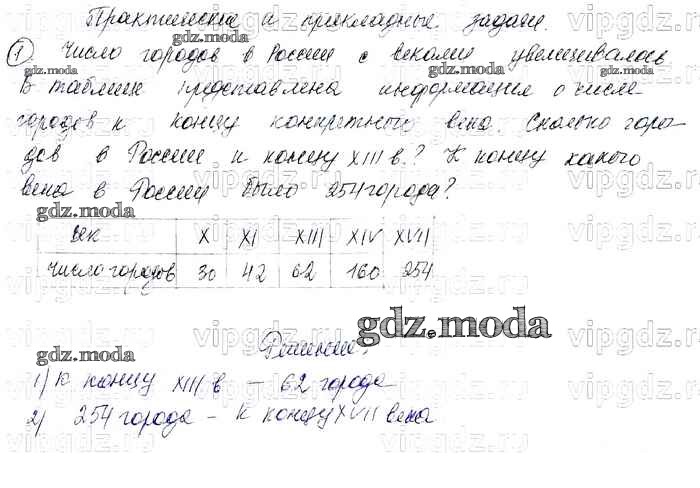 Практические и прикладные задачи.
1 Число городов в России с веками увеличивалось
В таблице представлены информация о числе
городов к концу конкретного века. Сколько горо-
дов в России к концу XIII в.? К концу какого
века в России было 254 города?
век X XI XIII XIV XVII
число городов 30 42 62 160 254
Решение.
1) К концу XIII в – 62 города
2) 254 города – к концу XVII века
gdz.moda
gdz.moda
gdz.moda
gdz.moda
gdz.moda
vipgdz.ru